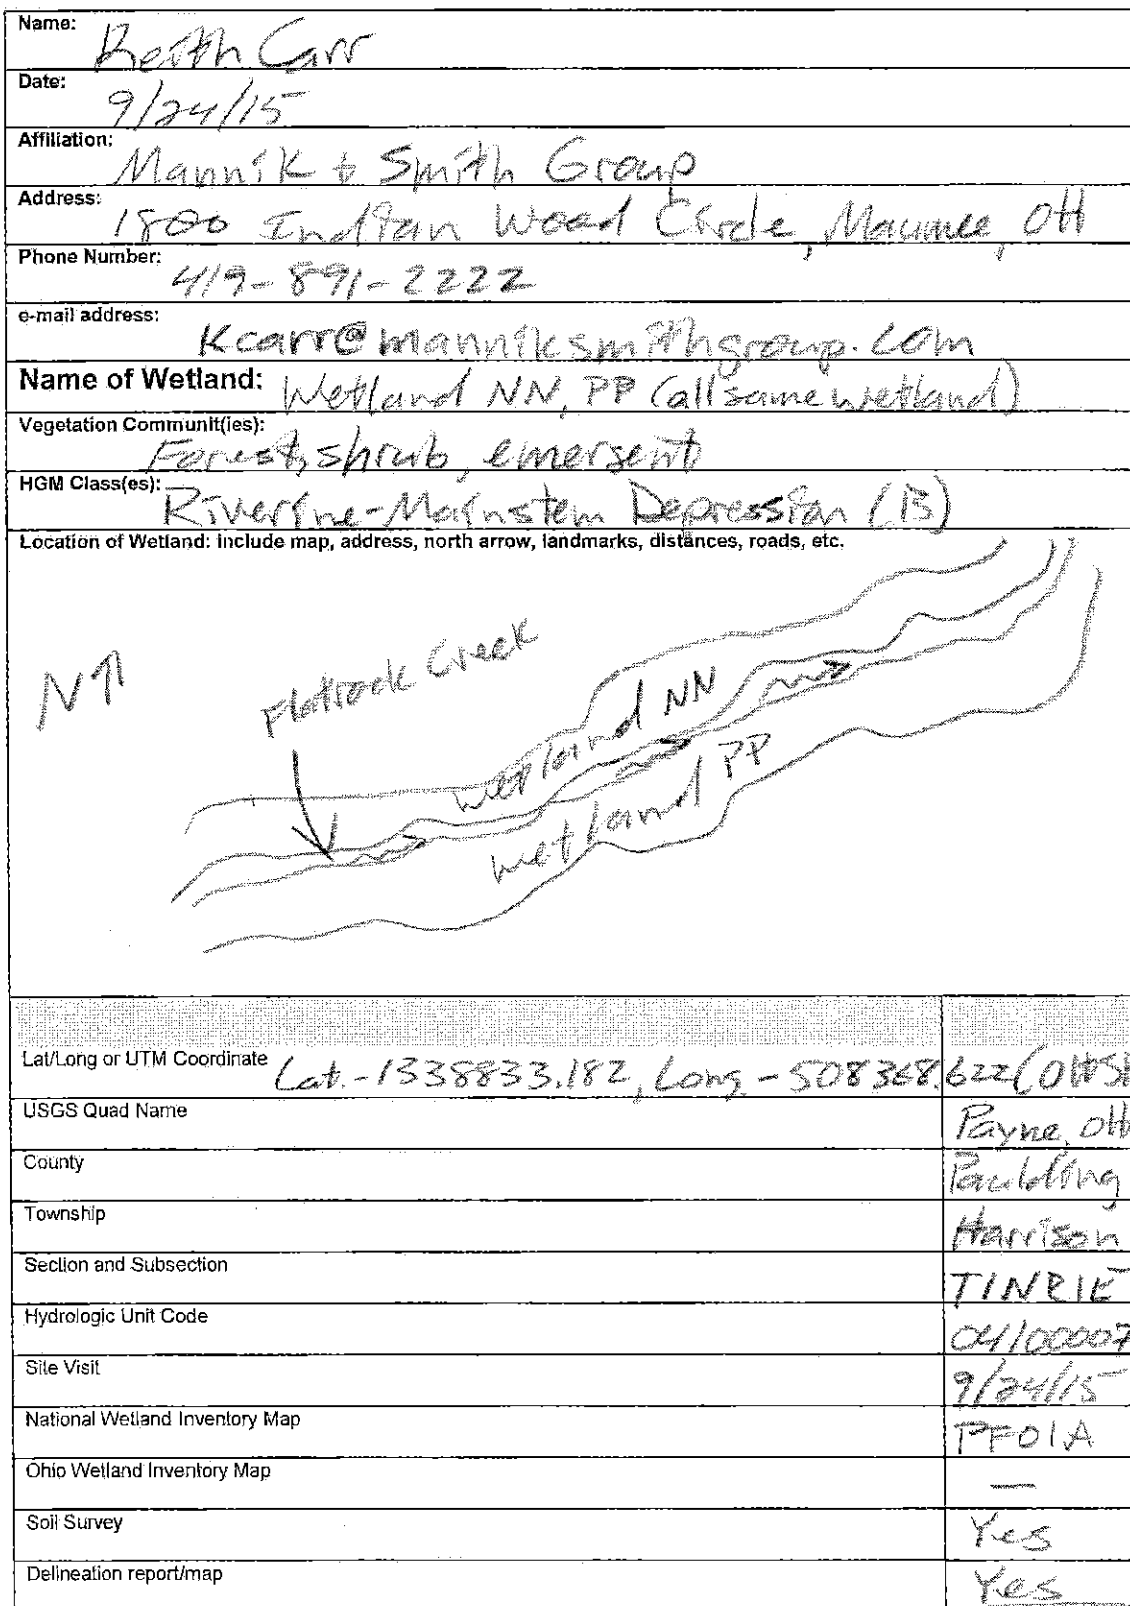 Name: Keith Carr
Date: 9/24/15
Affiliation: Mannik & Smith Group
Address: 1800 Indian Wood Circle, Maumee, OH
Phone Number: 419-891-2222
e-mail address: Kcarr@manniksmithgroup.com
Name of Wetland: Wetland NN, PP (all same wetland)
Vegetation Communit(ies): Forest, shrub, emergent
HGM Class(es): Riverine-Mainstem Depression (B)
Location of Wetland: include map, address, north arrow, landmarks, distances, roads, etc.
N↑
Flatrock Creek
wetland NN
wetland PP
Lat/Long or UTM Coordinate Lat.-1338833.182, Long -508368.622
USGS Quad Name Payne, OH
County Paulding
Township Harrison
Section and Subsection T1NR1E
Hydrologic Unit Code 04100007
Site Visit 9/24/15
National Wetland Inventory Map PFO1A
Ohio Wetland Inventory Map —
Soil Survey Yes
Delineation report/map Yes